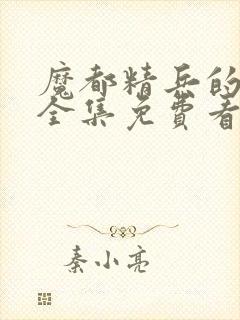 魔都精兵的
全集免费看
秦小亮